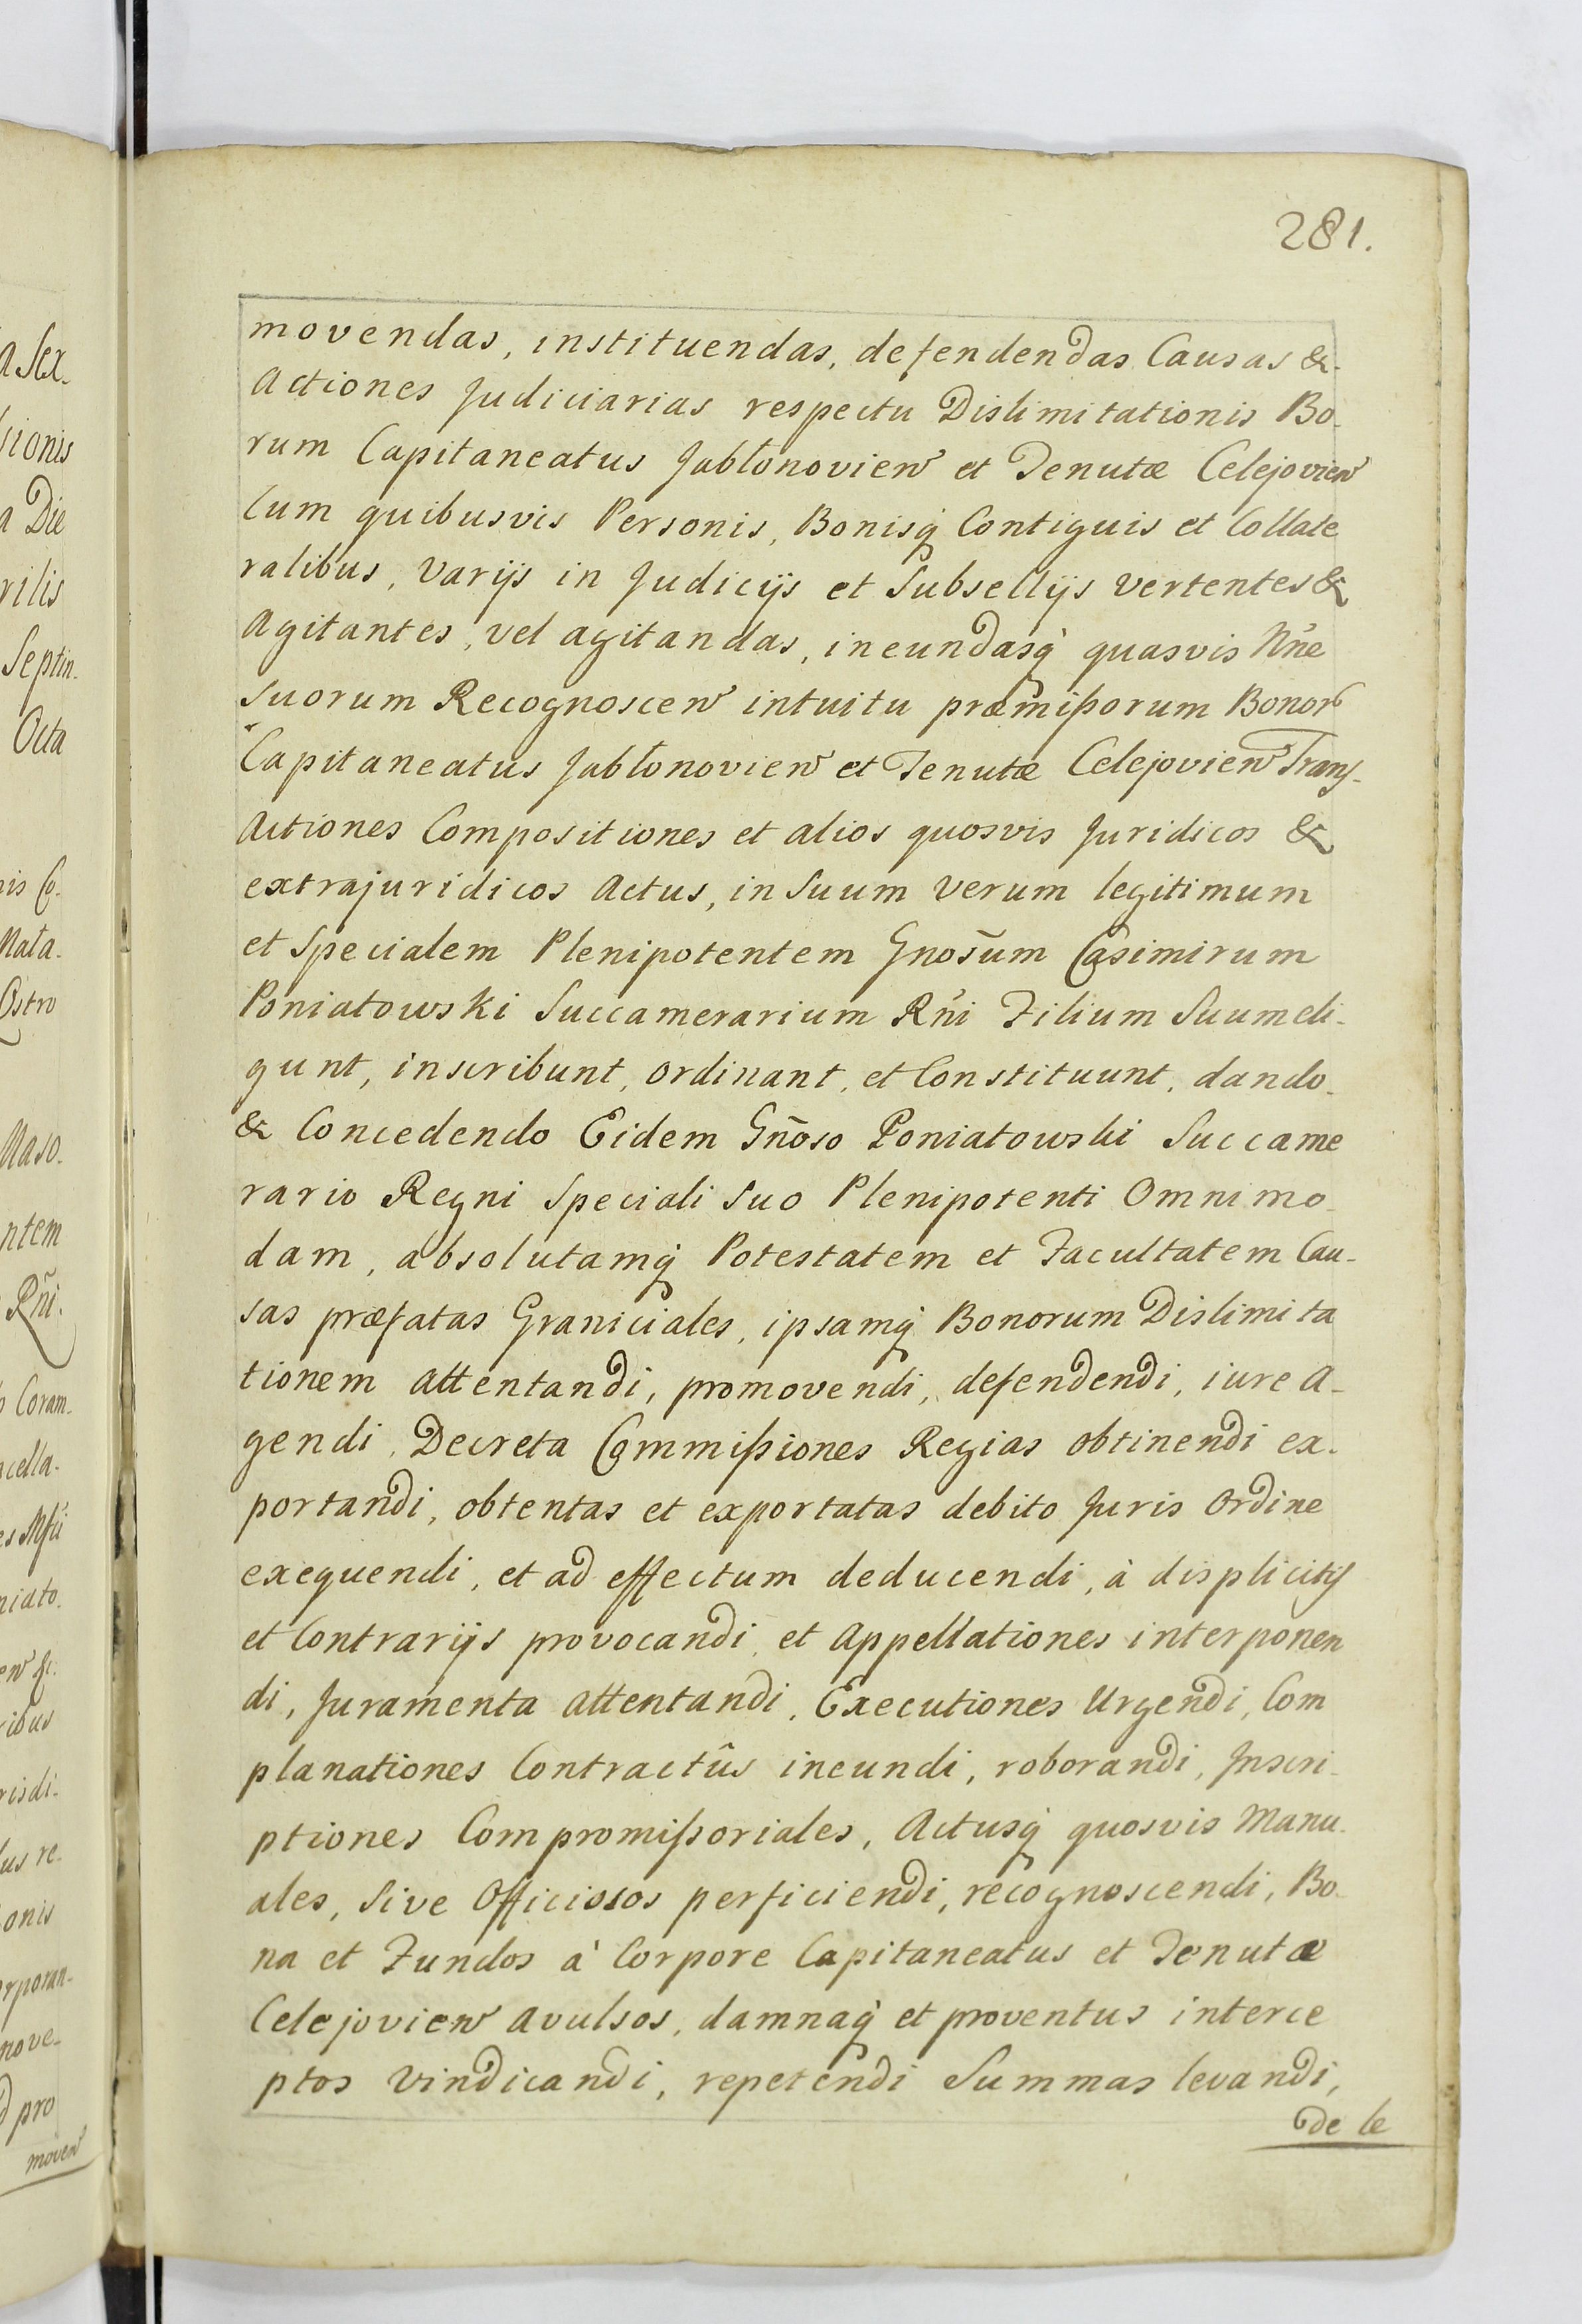 281.
movendas, instituendas, defendendas Causas &
Actiones Judiciarias respectu Dislimitationis Bo-
rum Capitaneatus Jabłonovien et Tenutæ Celejovien
Cum quibusvis Personis, Bonisq̃ Contiguis et Collate
ralibus, Varijs in Judicijs et Subsellijs vertentes &
Agitantes, vel agitandas, ineundasq̃ quasvis Nñe
suorum Recognoscen intuitu præmißorum Bonor
Capitaneatus Jabłonovien et Tenutæ Celejovien Trans-
Actiones Compositiones et alios quosvis Juridicos &
extrajuridicos Actus, in Suum Verum legitimum
et Specialem Plenipotentem Gnosũm Casimirum
Poniatowski Succamerarium Rñi Filium Suum eli-
gunt, inscribunt, ordinant, et Constituunt, dando
& Concedendo Eidem Gñoso Poniatowski Succame
rario Regni Speciali Suo Plenipotenti Omnimo
dam, absolutamq̃ Potestatem et Facultatem Cau-
sas præfatas Graniciales, ipsamq̃ Bonorum Dislimita
tionem attentandi, promovendi, defendendi, iure a-
gendi, Decreta Commißiones Regias obtinendi ex-
portandi, obtentas et exportatas debito Juris Ordine
exequendi, et ad effectum deducendi, à displicitis
et Contrarijs provocandi, et Appellationes interponen
di, Juramenta attentandi, Executiones Urgendi, Com
planationes Contractûs ineundi, roborandi, Inscri-
ptiones Compromißoriales, Actusq̃ quosvis Manu-
ales, Sive Officiosos perficiendi, recognoscendi, Bo-
na et Fundos à Corpore Capitaneatus et Tenutæ
Celejovien avulsos, damnaq̃ et proventus interce
ptos Vindicandi, repetendi Summas levandi,
de le